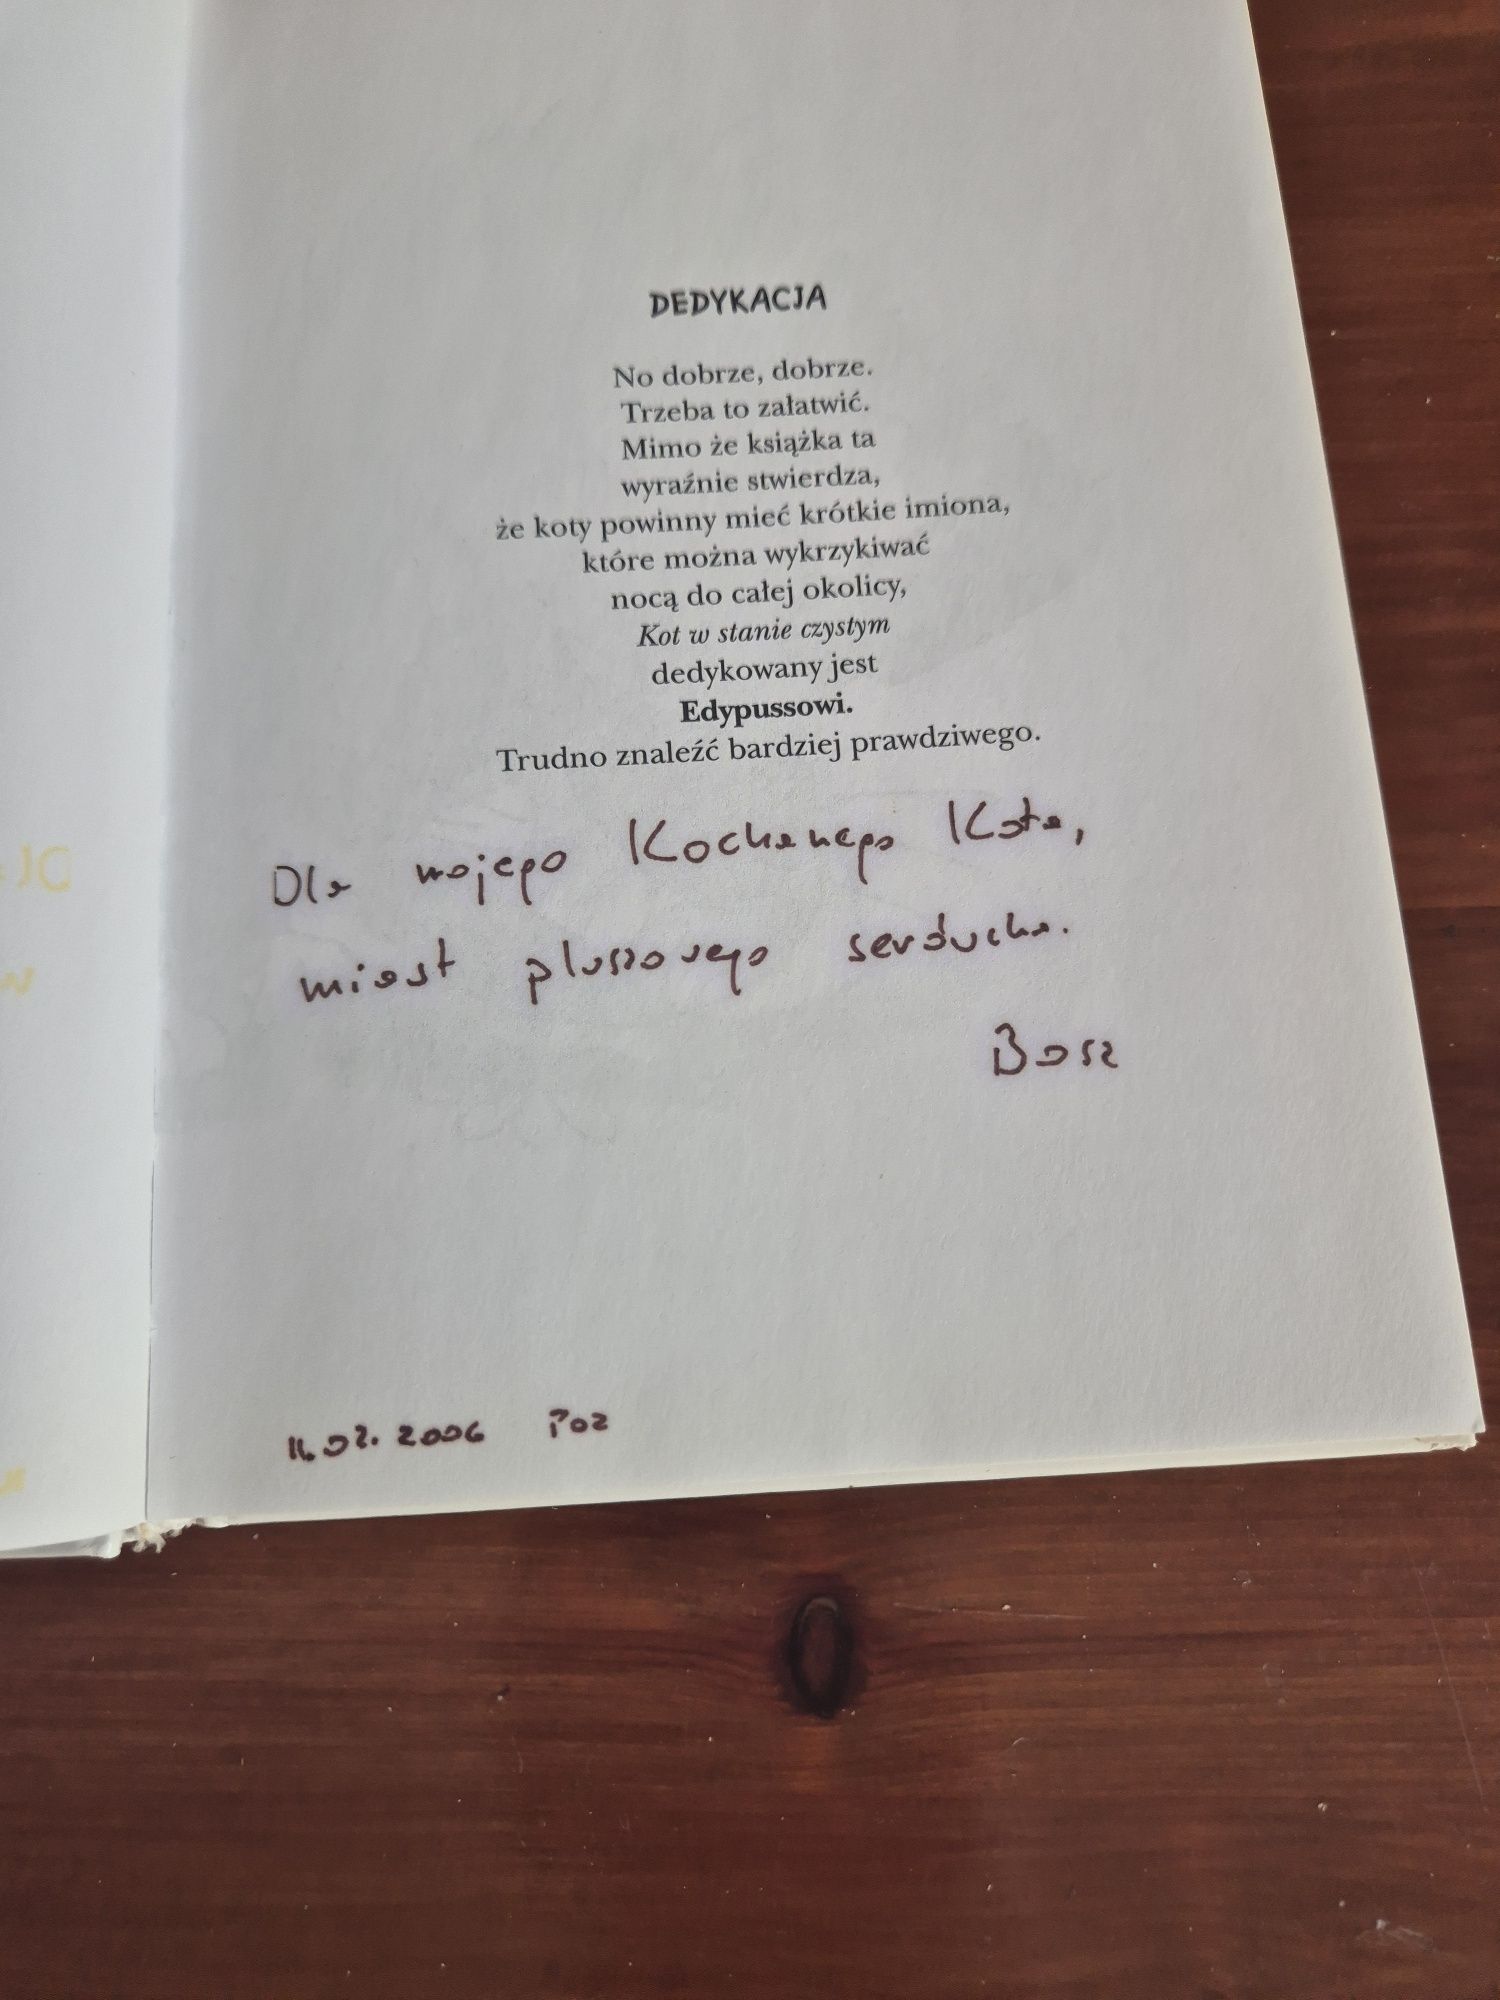 DEDYKACJA
No dobrze, dobrze.
Trzeba to załatwić.
Mimo że książka ta
wyraźnie stwierdza,
że koty powinny mieć krótkie imiona,
które można wykrzykiwać
nocą do całej okolicy,
Kot w stanie czystym
dedykowany jest
Edypussowi.
Trudno znaleźć bardziej prawdziwego.
Dla mojego Kochanego Kota,
miast pluszowego serducha.
Bosz
11.02.2006 Poz